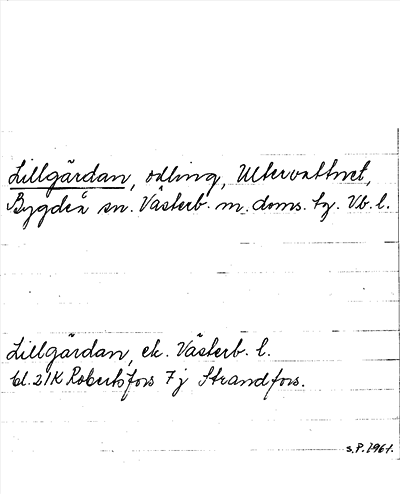 Lillgärdan, odling, Ultervattnet,
Bygdeå sn. Västerb. m. doms. tg. Vb. l.
Lillgärdan, ek. Västerb. l.
bl. 21K Robertsfors 7j Strandfors.
S.P. 1961.